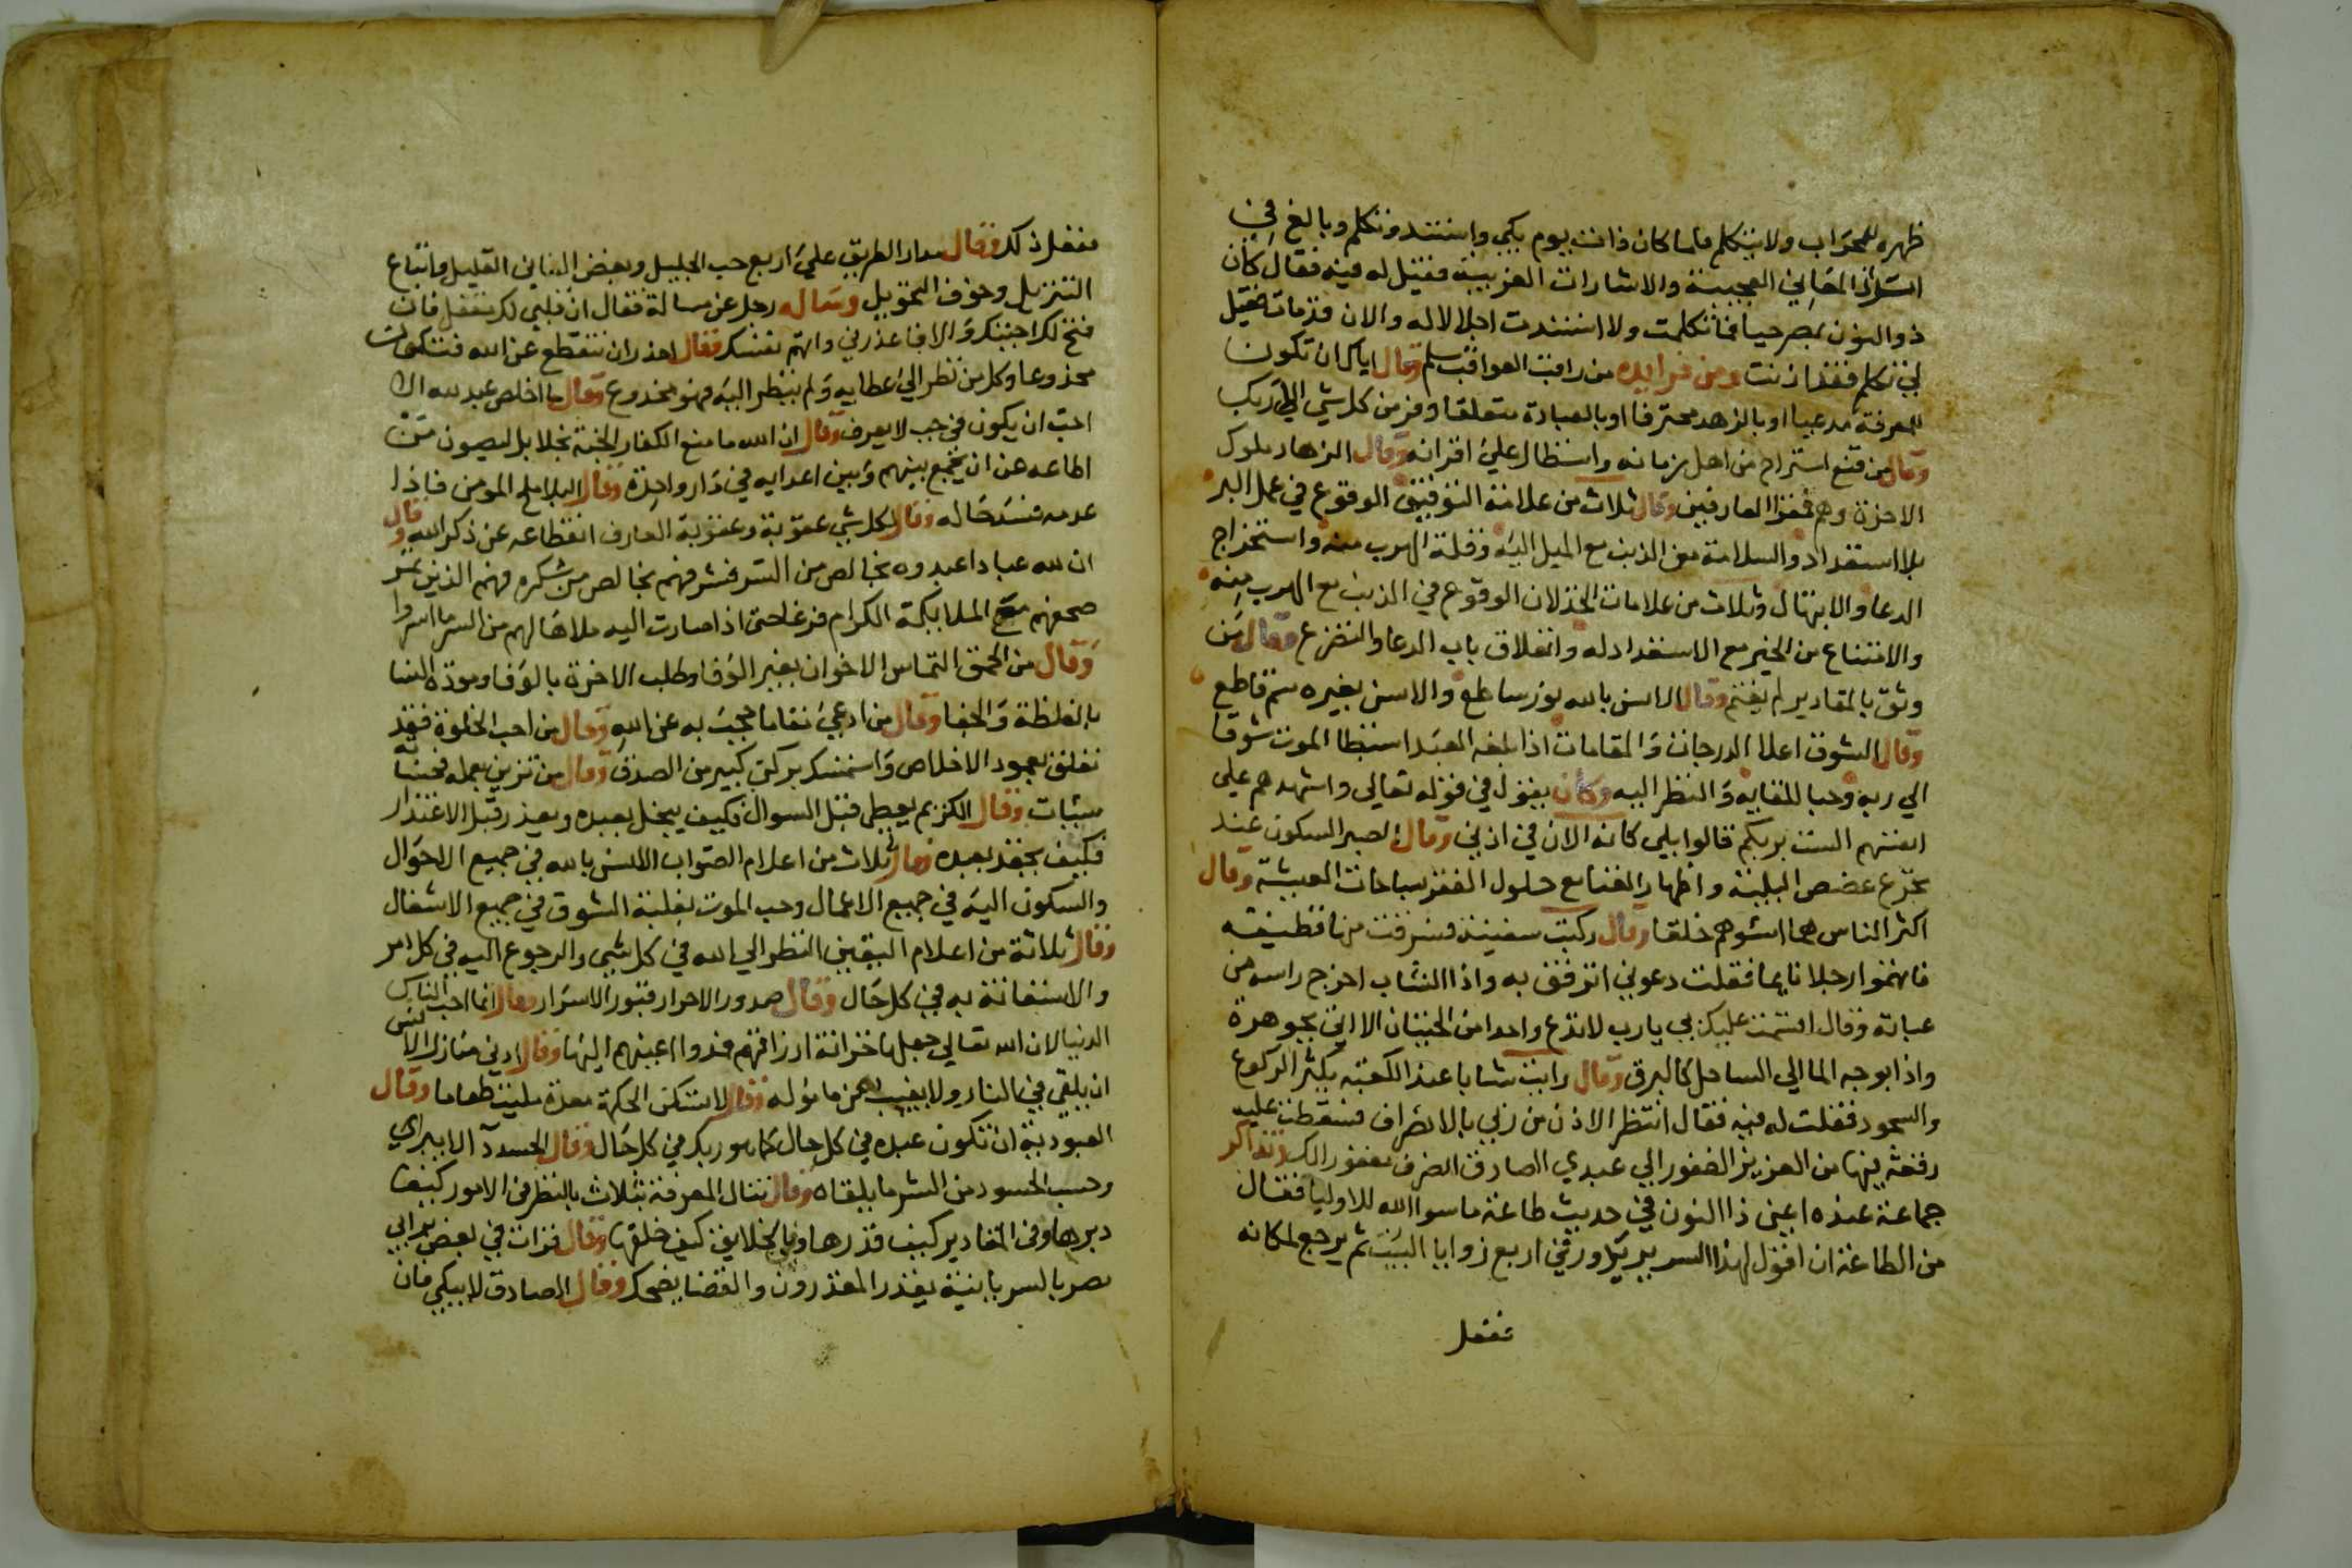 ظهره للمحراب ولا يتكلم فلما كان ذات يوم بكي واستند وتكلم وبالغ في
اسرار المعاني العجيبة والاشارات الغريبة فقيل له فيه فقال كان
ذو النون بمصر حيا فما تكلمت ولا استندت اجلالا له والان قد مات فقيل
لي تكلم فقد اذنت ومن فوايده من راقب العواقب سلم وقال اياك ان تكون
للمعرفة مدعيا او بالزهد محترفا او بالعبادة متعلقا وفر من كل شي الي ربك
وقال من قنع استراح من اهل زمانه واستطال علي اقرانه وقال الزهاد ملوك
الاخرة وهم فقرا العارفين وقال ثلاث من علامة التوفيق الوقوع في عمل البر
بلا استعداد والسلامة من الذنب مع الميل اليه وقلة الهرب منه واستخراج
الدعا والابتهال وثلاث من علامات الخذلان الوقوع في الذنب مع الهرب منه
والامتناع من الخير مع الاستعداد له وانغلاق باب الدعا والتضرع وقال من
وثق بالمقادير لم يغتم وقال الانس بالله نور ساطع والانس بغيره سم قاطع
وقال الشوق اعلا الدرجات والمقامات اذا بلغه العبد استبطا الموت شوقا
الي ربه وحبا للقايه والنظر اليه وكان يقول في قوله تعالي واشهدهم علي
انفسهم الست بربكم قالوا بلي كانه الان في اذني وقال الصبر السكون عند
تجرع غصص البلية واظهار الغنا مع حلول الفقر بساحات المعيشة وقال
اكثر الناس هما اسوهم خلقا وقال ركبت سفينة فسرقت منها قطيفة
فاتهموا رجلا نايما فقلت دعوني اترفق به واذا الشاب اخرج راسه من
عباته وقال اقسمت عليك يا رب لا تدع واحدا من الحيتان الا اتي بجوهرة
واذا بوجه الما الي الساحل كالبرق وقال رايت شابا عند الكعبة يكثر الركوع
والسجود فقلت له فيه فقال انتظر الاذن من ربي بالانصراف فسقطت عليه
رقعة فيها من العزيز الغفور الي عبدي الصادق انصرف مغفورا لك وتذاكر
جماعة عنده اعني ذا النون في حديث طاعة ما سوا الله للاوليا فقال
من الطاعة ان اقول لهذا السرير يدور في اربع زوايا البيت ثم يرجع لمكانه
ففعل
ففعل ذلك وقال مدار الطريق علي اربع حب الجليل وبغض الفاني القليل واتباع
التنزيل وخوف التحويل وساله رجل عن مسالة فقال ان قلبي لك مقفل فان
فتح لك اجبتك والا فاعذرني واتهم نفسك وقال احذر ان تنقطع عن الله فتكون
مخدوعا وكل من نظر الي عطاياه ولم ينظر اليه فهو مخدوع وقال ما اخلص عبد لله الا
احب ان يكون في جب لا يعرف وقال ان الله ما منع الكفار الجنة بخلا بل ليصون من
اطاعه عن ان يجمع بينهم وبين اعدايه في دار واحدة وقال البلا ملح المومن فاذا
عدمه فسد حاله وقال لكل شي عقوبة وعقوبة العارف انقطاعه عن ذكر الله وقال
ان لله عبادا عبدوه بخالص من السر فشرفهم بخالص من شكره فهم الذين تمر
صحفهم مع الملايكة الكرام فرغا حتي اذا صارت اليه ملاها لهم من السر ما اسروا
وقال من الحمق التماس الاخوان بغير الوفا وطلب الاخرة بالوفا ومودة النسا
بالغلظة والجفا وقال من ادعي مقاما حجب به عن الله وقال من احب الخلوة فقد
تعلق بعمود الاخلاص واستمسك بركن كبير من الصدق وقال من تزين بعمله فحسناته
سيات وقال الكريم يعطي قبل السوال فكيف يبخل بعده ويعذر قبل الاعتذار
فكيف يحقد بعده وقال ثلاث من اعلام الصواب الانس بالله في جميع الاحوال
والسكون اليه في جميع الاعمال وحب الموت بغلبة الشوق في جميع الاشغال
وقال ثلاثة من اعلام اليقين النظر الي الله في كل شي والرجوع اليه في كل امر
والاستعانة به في كل حال وقال صدور الاحرار قبور الاسرار وقال انما احب الناس
الدنيا لان الله تعالي جعلها خزانة ارزاقهم فمدوا اعينهم اليها وقال ادني منازل الانس
ان يلقي في النار ولا يغيب عن مامولة وقال لا تسكن الحكمة معدة مليت طعاما وقال
العبودية ان تكون عبده في كل حال كما هو ربك في كل حال وقال الحسد دآ لا يبرا
وحسب الحسود من الشر ما يلقاه وقال تنال المعرفة بثلاث بالنظر في الامور كيف
دبرها وفي المقادير كيف قدرها وفي الخلايق كيف خلقها وقال قرات في بعض برابي
مصر بالسريانية يقدر المقدرون والقضا يضحك وقال الصادق لا يبكي فان